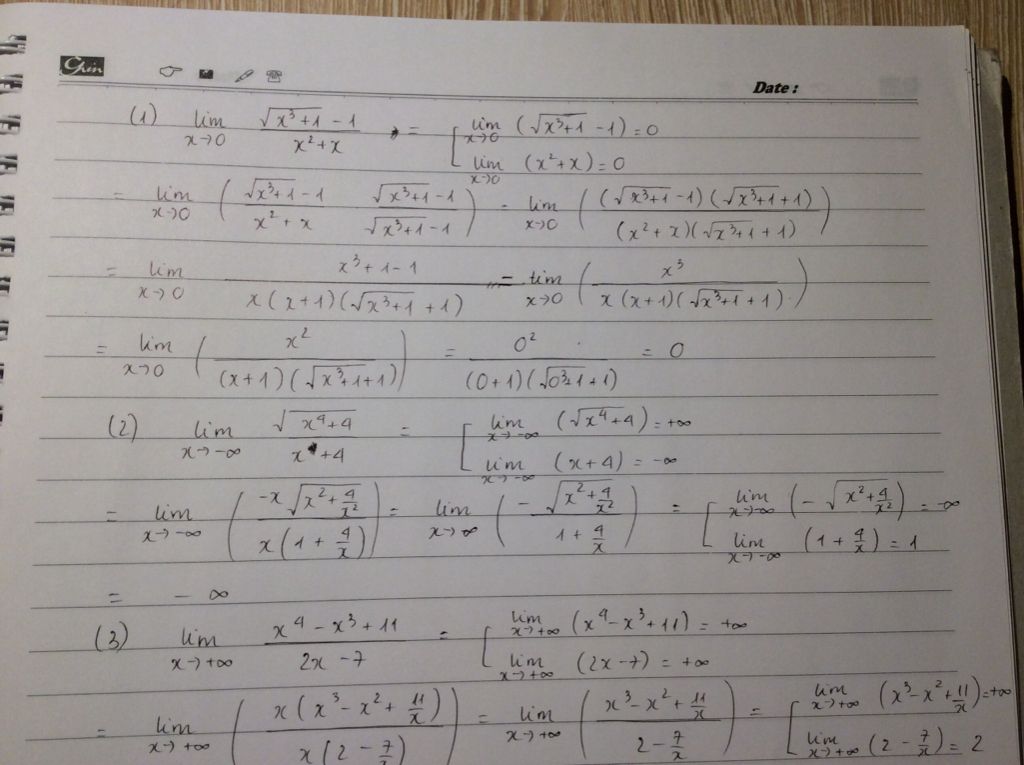 Grin
Date :
(1) lim x→0 (√(x³+1) - 1)/(x²+x) = [ lim x→0 (√(x³+1) - 1) = 0
lim x→0 (x²+x) = 0
= lim x→0 ( (√(x³+1) - 1)/(x²+x) (√(x³+1) - 1)/(√(x³+1) - 1) ) = lim x→0 ( ((√(x³+1) - 1)(√(x³+1) + 1))/((x²+x)(√(x³+1) + 1)) )
= lim x→0 (x³+1-1)/(x(x+1)(√(x³+1) + 1)) = lim x→0 ( x³/(x(x+1)(√(x³+1) + 1)) )
= lim x→0 ( x²/((x+1)(√(x³+1) + 1)) ) = 0²/((0+1)(√(0³+1) + 1)) = 0
(2) lim x→-∞ √(x⁴+4)/(x+4) = [ lim x→-∞ (√(x⁴+4)) = +∞
lim x→-∞ (x+4) = -∞
= lim x→-∞ ( (-x√(x²+4/x²))/(x(1+4/x)) ) = lim x→∞ ( (-√(x²+4/x²))/(1+4/x) ) = [ lim x→-∞ (-√(x²+4/x²)) = -∞
lim x→-∞ (1+4/x) = 1
= -∞
(3) lim x→+∞ (x⁴-x³+11)/(2x-7) = [ lim x→+∞ (x⁴-x³+11) = +∞
lim x→+∞ (2x-7) = +∞
= lim x→+∞ ( (x(x³-x²+11/x))/(x(2-7/x)) ) = lim x→+∞ ( (x³-x²+11/x)/(2-7/x) ) = [ lim x→+∞ (x³-x²+11/x) = +∞
lim x→+∞ (2-7/x) = 2